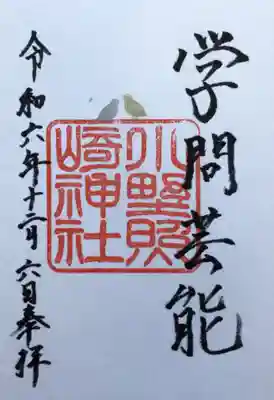 学問芸能
小野照
崎神社
令和六年十二月六日奉拝